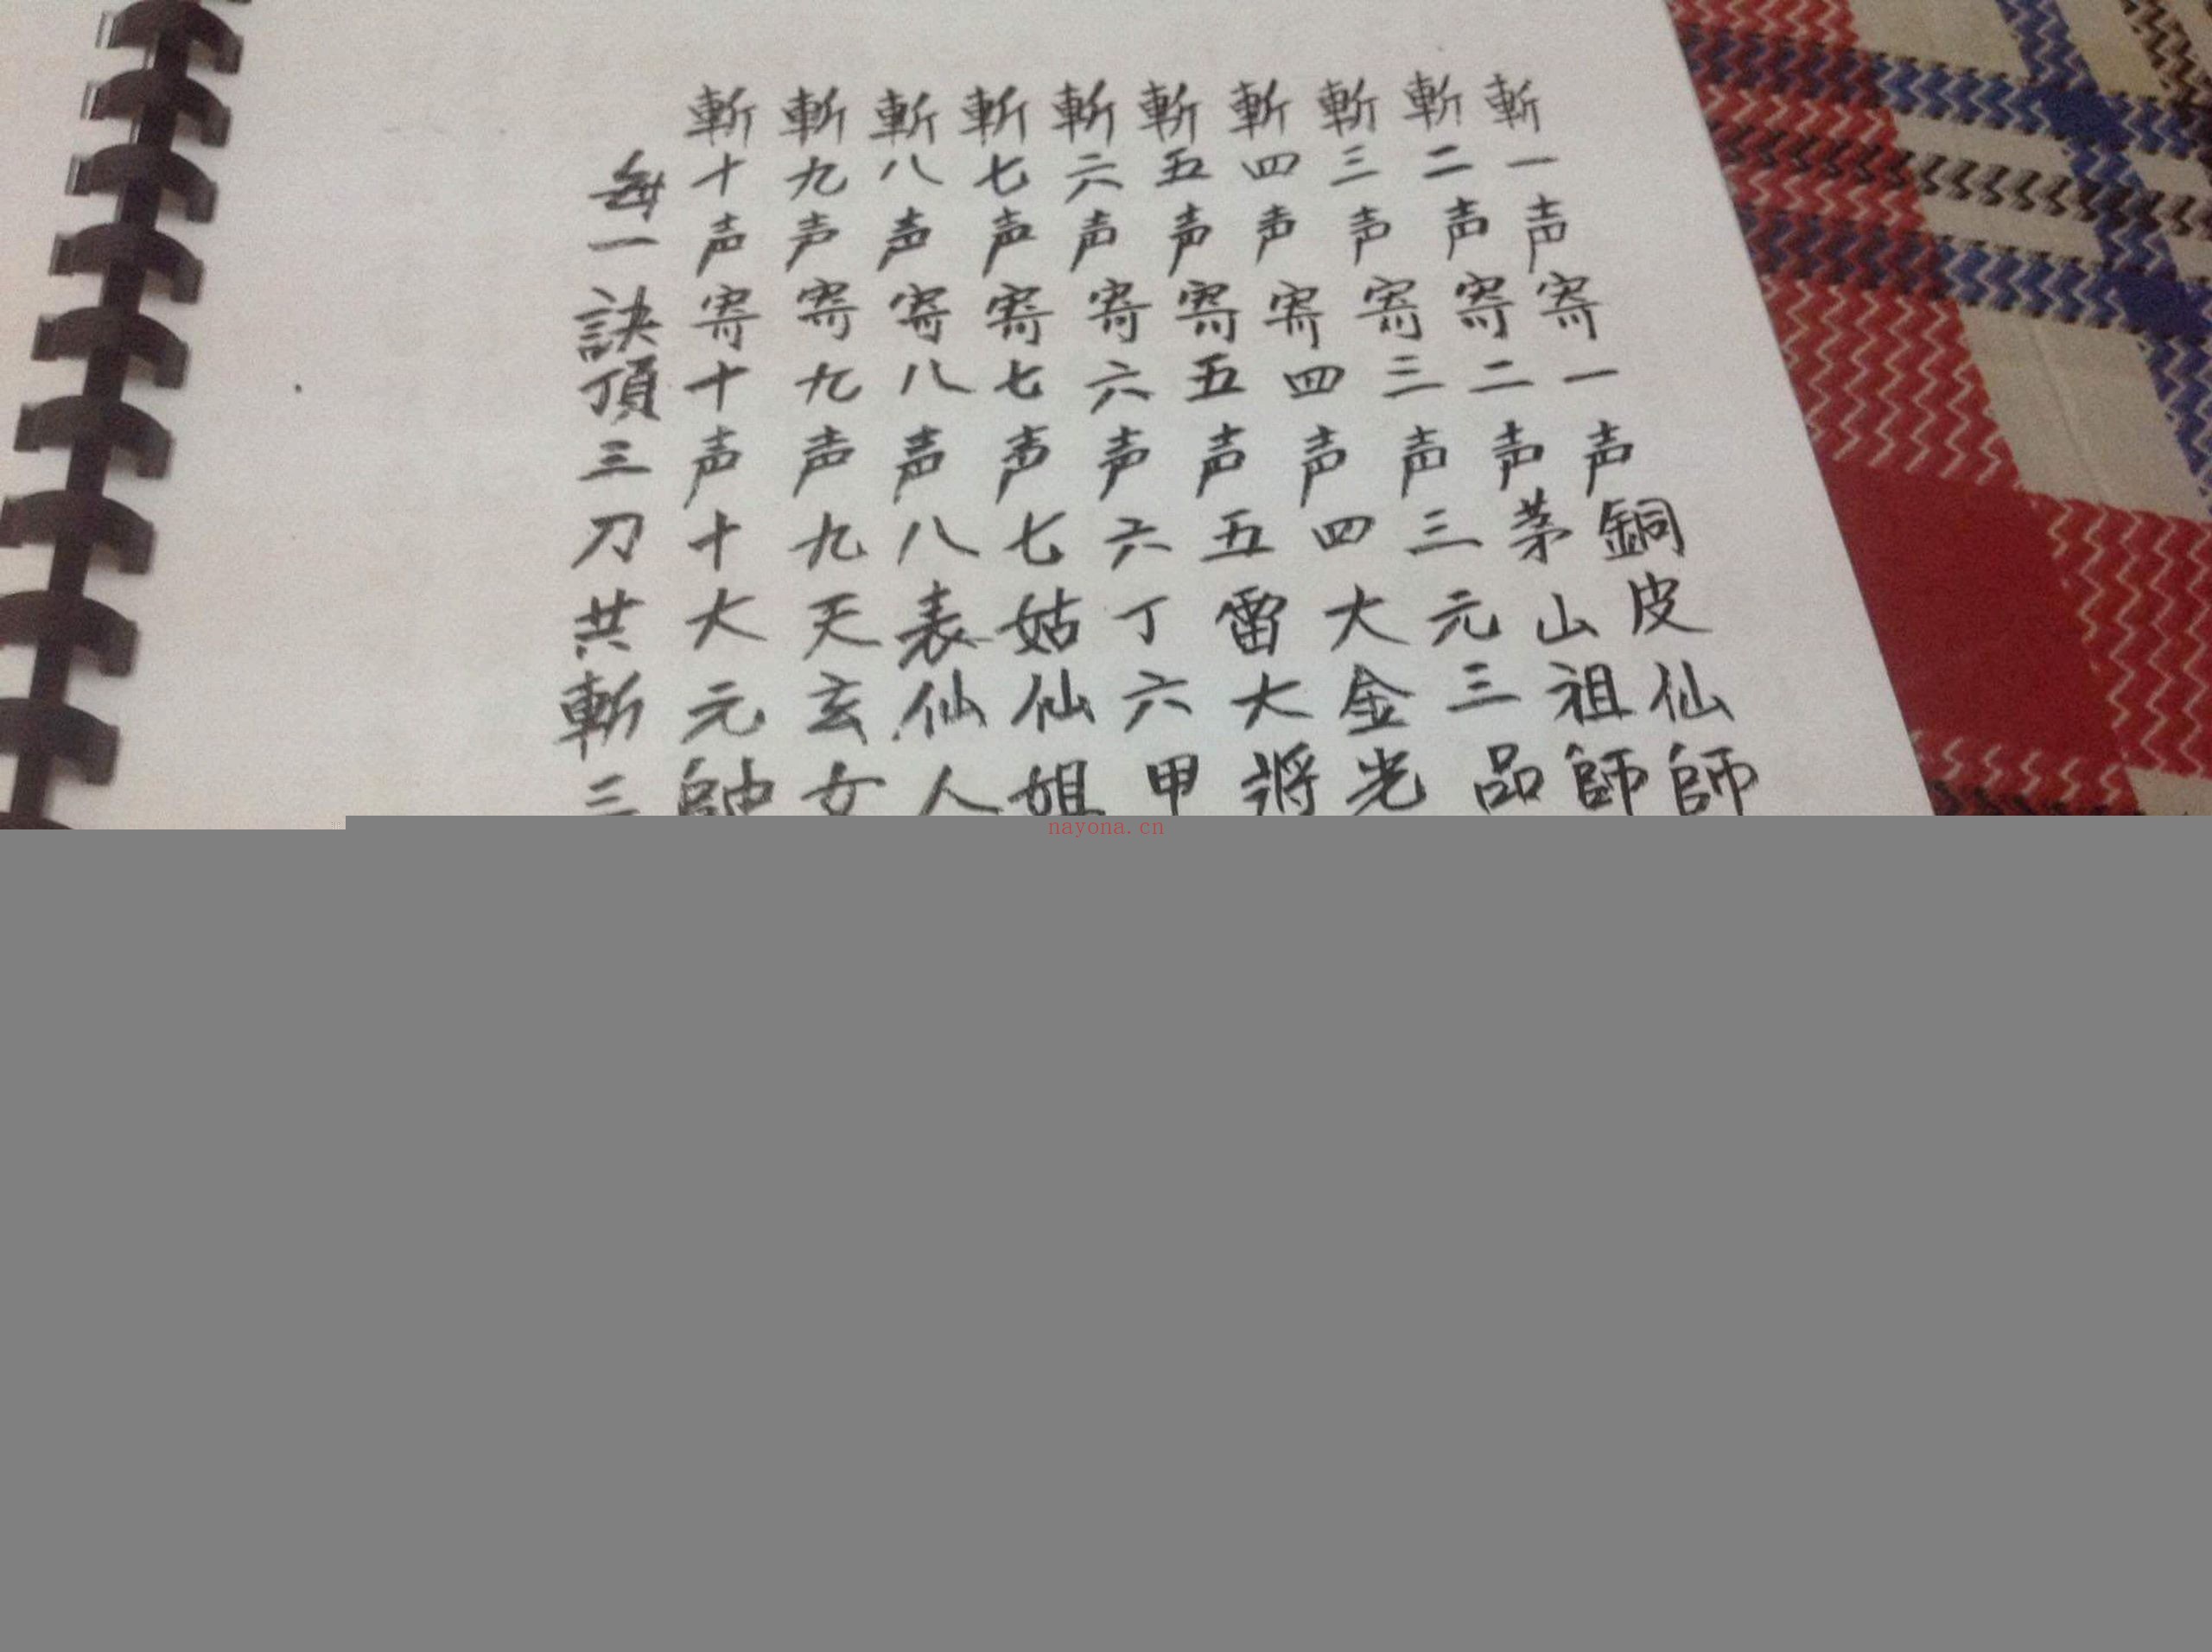 斬一声寄一声銅皮仙師
斬二声寄二声茅山祖師
斬三声寄三声三元三品
斬四声寄四声四大金光
斬五声寄五声五雷大将
斬六声寄六声六丁六甲
斬七声寄七声七姑仙姐
斬八声寄八声八表仙人
斬九声寄九声九天玄女
斬十声寄十声十大元帥
每一訣頂三刀共斬三
nayona.cn